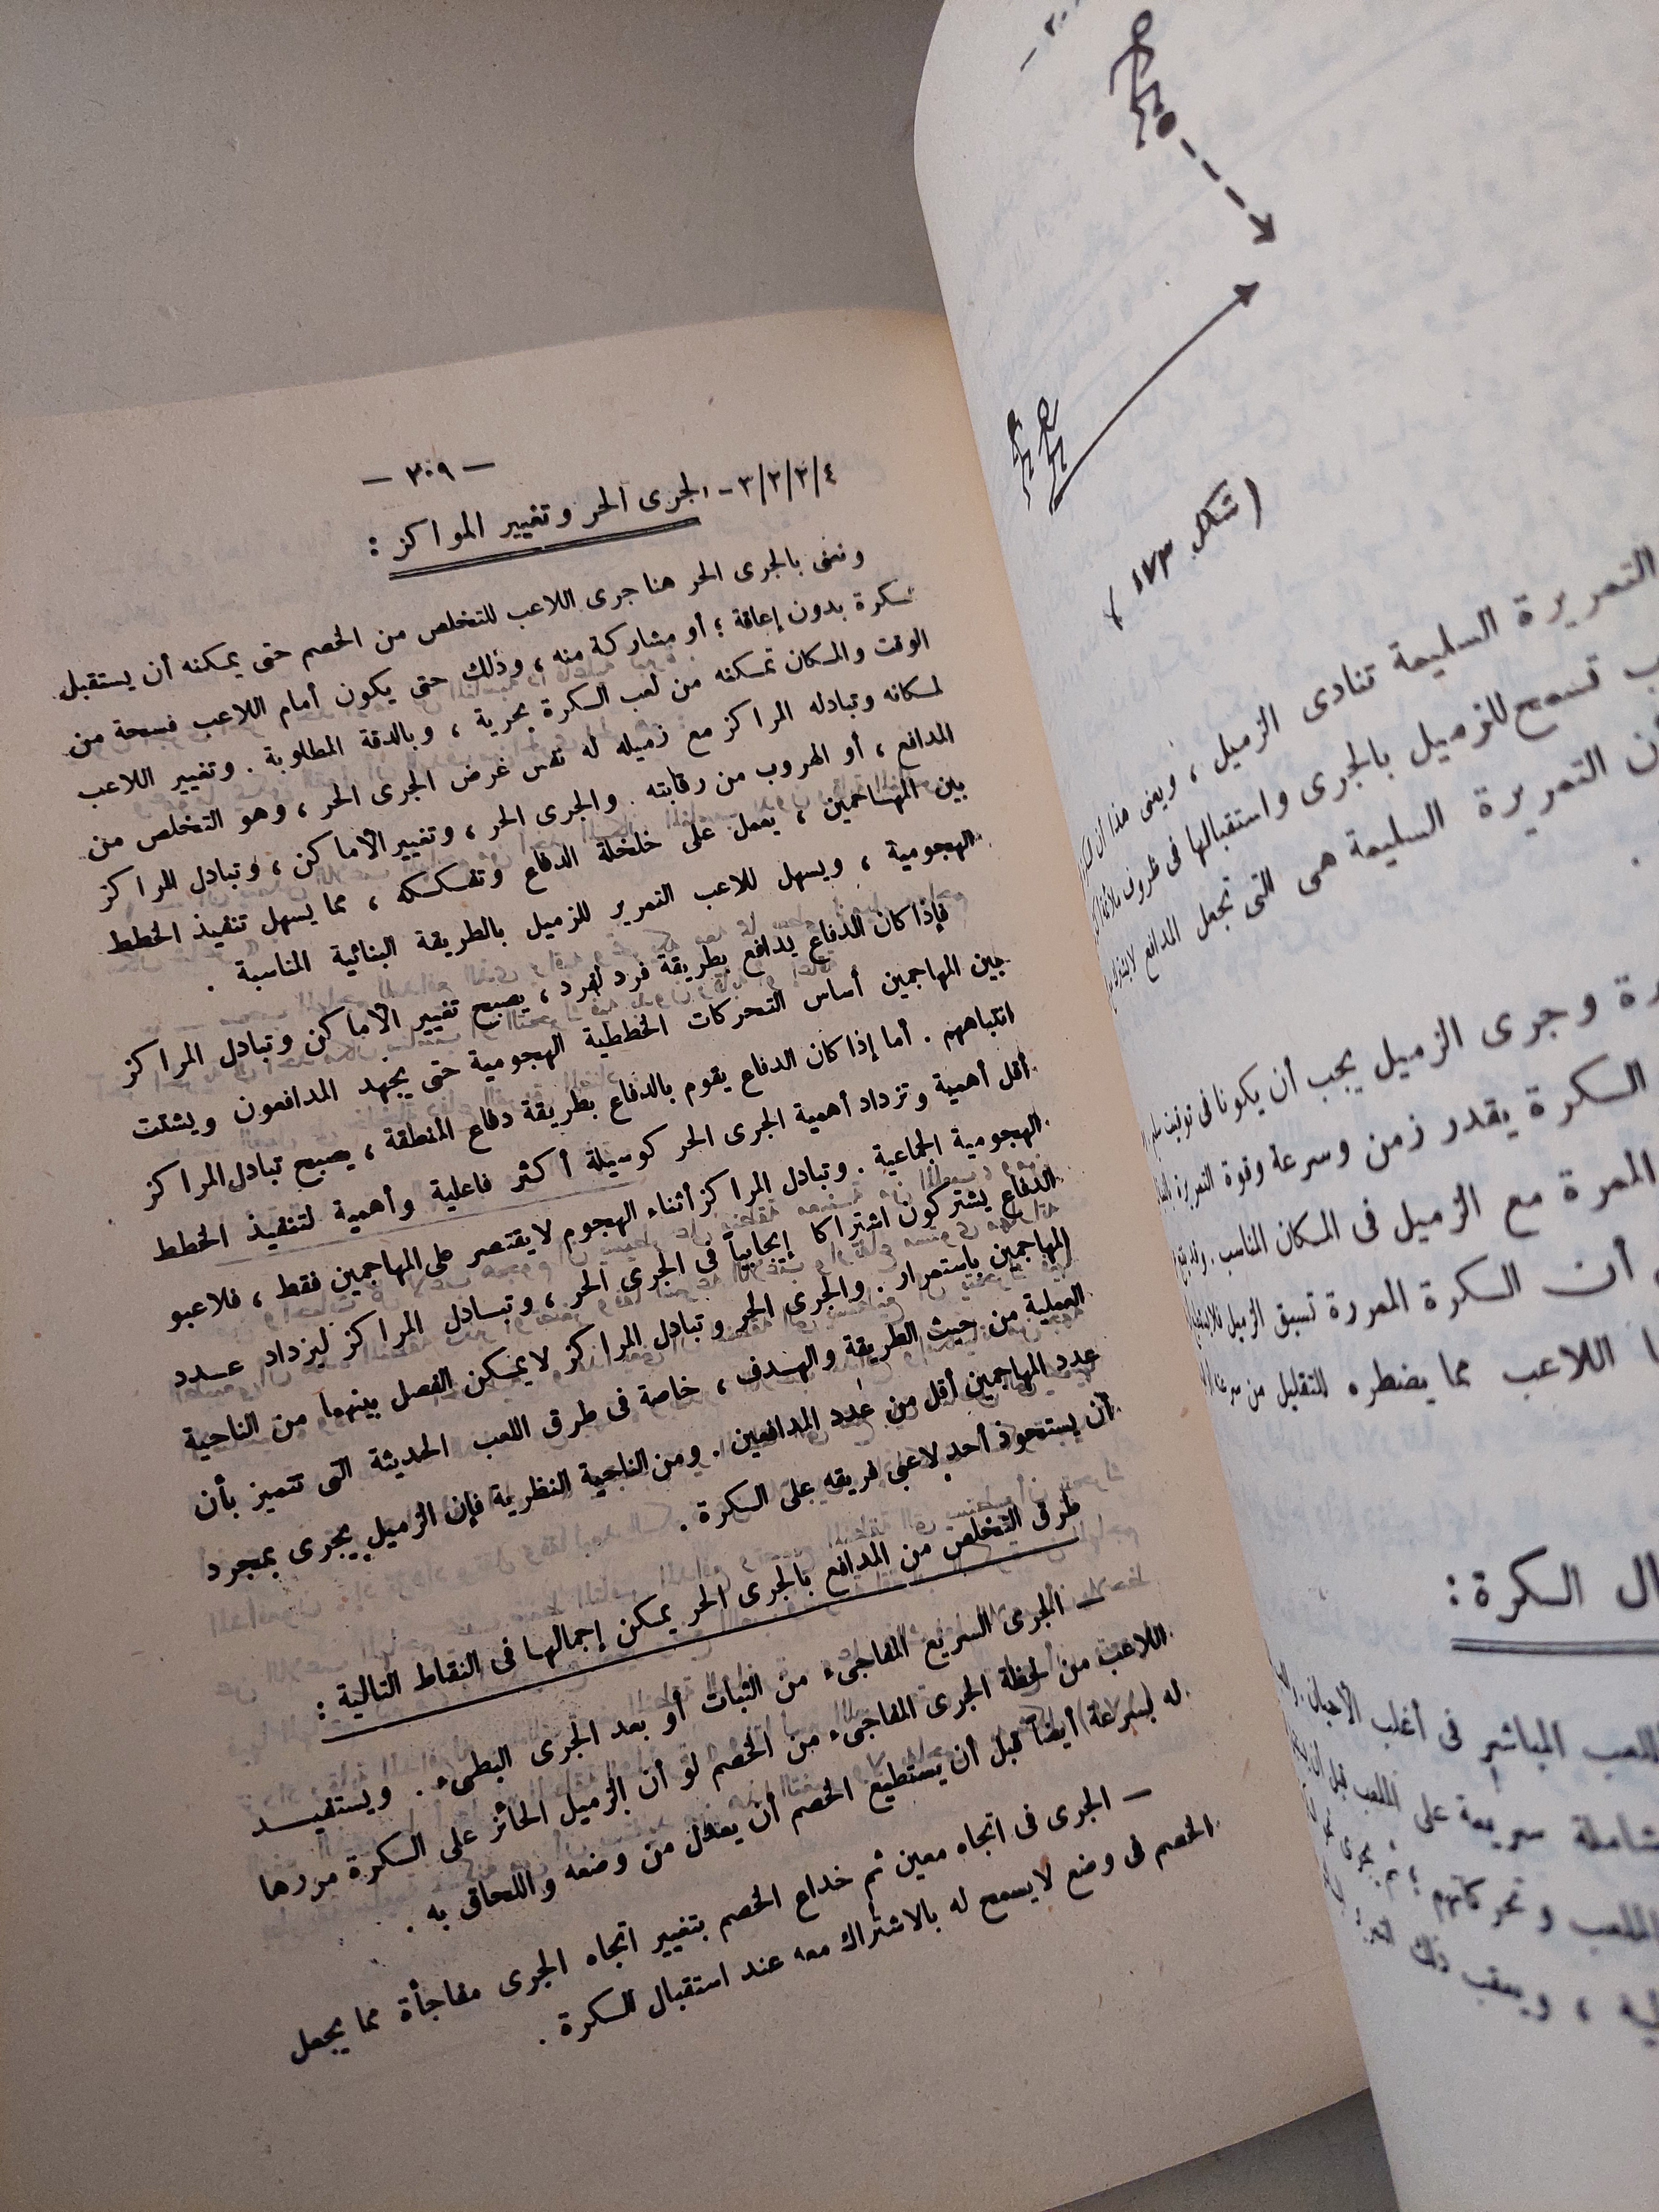 — ٣٠٩ —
٣/٢/٢/٤ - الجرى الحر وتغيير المراكز :
ونعنى بالجرى الحر هنا جرى اللاعب للتخلص من الخصم حتى يمكنه أن يستقبل
الكرة بدون إعاقة ؛ أو مشاركة منه ، وذلك حتى يكون أمام اللاعب فسحة من
الوقت والمكان تمكنه من لعب الكرة بحرية ، وبالدقة المطلوبة . وتغيير اللاعب
لمكانه وتبادله المراكز مع زميله له نفس غرض الجرى الحر ، وهو التخلص من
المدافع ، أو الهروب من رقابته . والجرى الحر ، وتغيير الأماكن ، وتبادل المراكز
بين المهاجمين ، يعمل على خلخلة الدفاع وتفككه ، مما يسهل تنفيذ الخطط
الهجومية ، ويسهل للاعب التمرير للزميل بالطريقة البنائية المناسبة .
فإذا كان الدفاع يدافع بطريقة فرد لفرد ، يصبح تغيير الأماكن وتبادل المراكز
بين المهاجمين أساس التحركات الخططية الهجومية حتى يجهد المدافعون ويشتت
انتباههم . أما إذا كان الدفاع يقوم بالدفاع بطريقة دفاع المنطقة ، يصبح تبادل المراكز
أقل أهمية وتزداد أهمية الجرى الحر كوسيلة أكثر فاعلية وأهمية لتنفيذ الخطط
الهجومية الجماعية . وتبادل المراكز أثناء الهجوم لا يقتصر على المهاجمين فقط ، فلاعبو
الدفاع يشتركون اشتراكا إيجابياً فى الجرى الحر ، وتبادل المراكز ليزداد عدد
المهاجمين باستمرار . والجرى الحر وتبادل المراكز لا يمكن الفصل بينهما من الناحية
العملية من حيث الطريقة والهدف ، خاصة فى طرق اللعب الحديثة التى تتميز بأن
عدد المهاجمين أقل من عدد المدافعين . ومن الناحية النظرية فإن الزميل يجرى بمجرد
أن يستحوذ أحد لاعبى فريقه على الكرة .
طرق التخلص من المدافع بالجرى الحر يمكن إجمالها فى النقاط التالية :
— الجرى السريع المفاجىء من الثبات أو بعد الجرى البطىء . ويستفيد
اللاعب من لحظة الجرى المفاجىء من الخصم لو أن الزميل الحائز على الكرة مررها
له (بسرعة) أيضاً قبل أن يستطيع الخصم أن يعدل من وضعه واللحاق به .
— الجرى فى اتجاه معين ثم خداع الخصم بتغيير اتجاه الجرى مفاجأة مما يجعل
الخصم فى وضع لا يسمح له بالاشتراك معه عند استقبال الكرة .
( شكل ١٧٣ )
التمريرة السليمة تنادى الزميل ، ويعنى هذا أن
تسمح للزميل بالجرى واستقبالها فى ظروف
التمريرة السليمة هى التى تجعل المدافع
وجرى الزميل يجب أن يكونا فى توقيت
الكرة يقدر زمن وسرعة وقوة التمريرة
الممرة مع الزميل فى المكان المناسب .
أن الكرة الممررة تسبق الزميل
اللاعب مما يضطره للتقليل من سرعته
الكرة :
اللعب المباشر فى أغلب الأحيان .
شاملة سريعة على الملعب قبل أن
الملعب وتحركاتهم ؛ ثم يجرى
، ويعقب ذلك